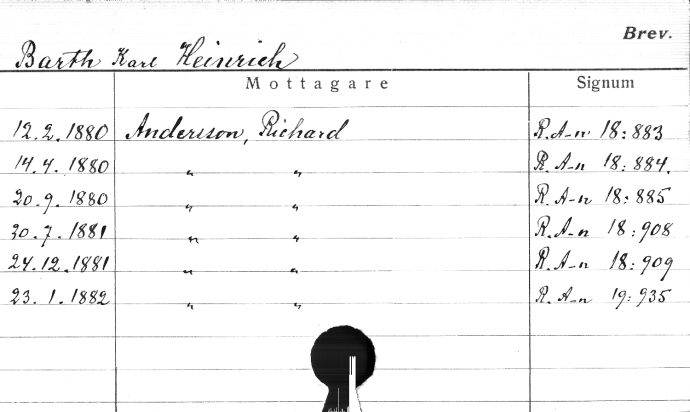 Brev.
Barth Karl Heinrich
Mottagare Signum
12.2.1880 Andersson, Richard R.A-n 18:883
14.4.1880 " " R.A-n 18:884.
20.9.1880 " " R.A-n 18:885
30.7.1881 " " R.A-n 18:908
24.12.1881 " " R.A-n 18:909
23.1.1882 " " R.A-n 19:935